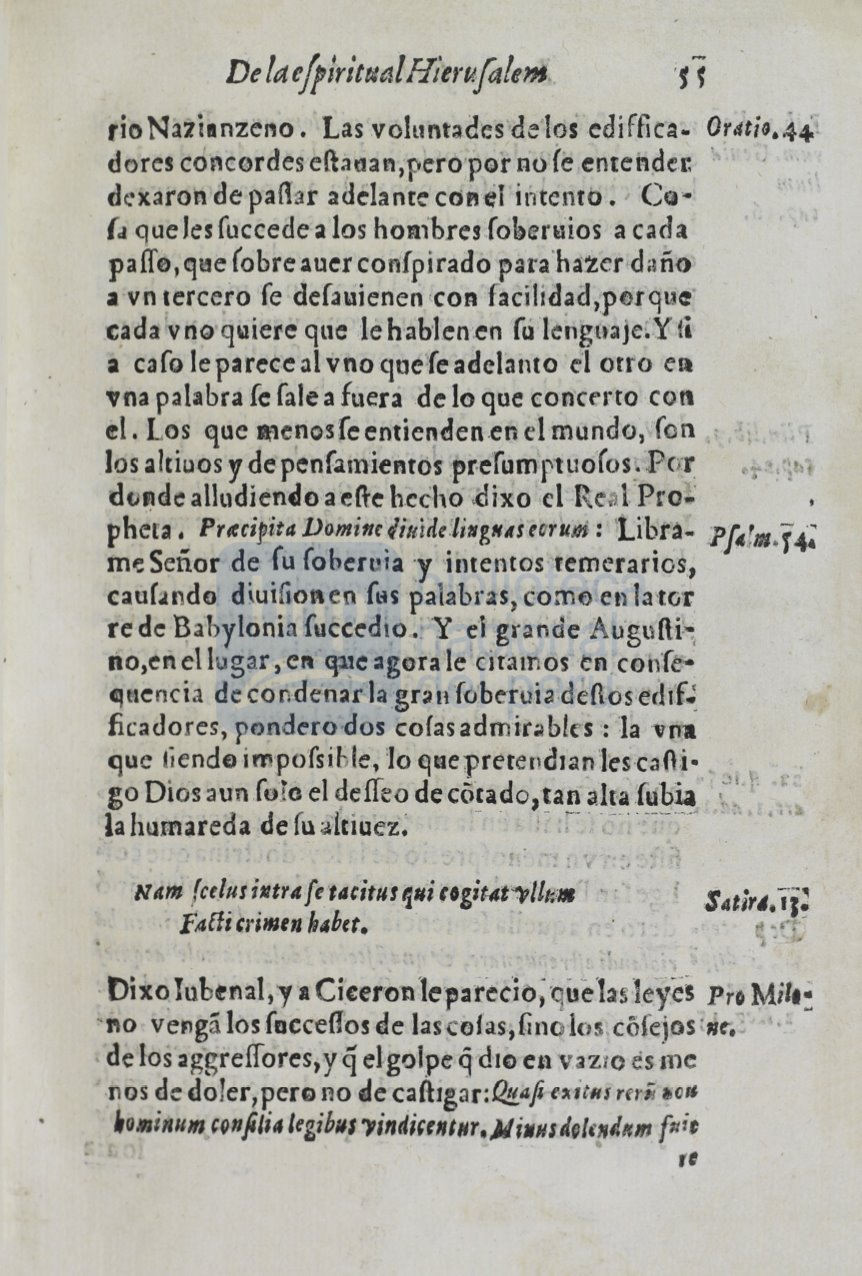 De la eſpiritual Hieruſalem 55
rio Nazianzeno. Las voluntades de los ediffica- Oratio. 44
dores concordes eſtauan, pero por no ſe entender
dexaron de paſſar adelante con el intento. Co-
ſa que les ſuccede a los hombres ſoberuios a cada
paſſo, que ſobre auer conſpirado para hazer daño
a vn tercero ſe deſauienen con facilidad, porque
cada vno quiere que le hablen en ſu lenguaje. Y ſi
a caſo le parece al vno que ſe adelanto el otro en
vna palabra ſe ſale a fuera de lo que concerto con
el. Los que menos ſe entienden en el mundo, ſon
los altiuos y de penſamientos preſumptuoſos. Por
donde alludiendo a eſte hecho dixo el Real Pro-
pheta. Præcipita Domine diuide linguas eorum: Libra- Pſalm. 54.
me Señor de ſu ſoberuia y intentos temerarios,
cauſando diuiſion en ſus palabras, como en la tor
re de Babylonia ſuccedio. Y el grande Auguſti-
no, en el lugar, en que agora le citamos en conſe-
quencia de condenar la gran ſoberuia deſtos edif-
ficadores, pondero dos coſas admirables: la vna
que ſiendo impoſsible, lo que pretendian les caſti-
go Dios aun ſolo el deſſeo de cõtado, tan alta ſubia
la humareda de ſu altiuez.
Nam ſcelus intra ſe tacitus qui cogitat vllum Satira. 13.
Facti crimen habet.
Dixo Iubenal, y a Ciceron le parecio, que las leyes Pro Milo-
no vengã los ſucceſſos de las coſas, ſino los cõſejos ne.
de los aggreſſores, y q̃ el golpe q̃ dio en vazio es me
nos de doler, pero no de caſtigar: Quaſi exitus rerũ non
hominum conſilia legibus vindicentur. Minus dolendum fuit
re